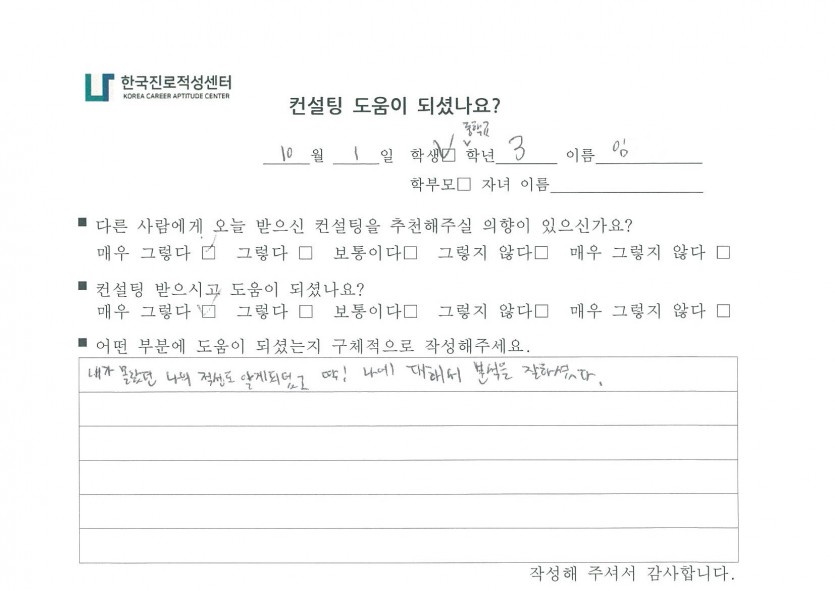 한국진로적성센터
KOREA CAREER APTITUDE CENTER
컨설팅 도움이 되셨나요?
중학교
10 월 1 일 학생☑ 학년 3 이름 임
학부모□ 자녀 이름
■ 다른 사람에게 오늘 받으신 컨설팅을 추천해주실 의향이 있으신가요?
매우 그렇다 ☑ 그렇다 □ 보통이다□ 그렇지 않다□ 매우 그렇지 않다 □
■ 컨설팅 받으시고 도움이 되셨나요?
매우 그렇다 ☑ 그렇다 □ 보통이다□ 그렇지 않다□ 매우 그렇지 않다 □
■ 어떤 부분에 도움이 되셨는지 구체적으로 작성해주세요.
내가 몰랐던 나의 적성도 알게되었고 딱! 나에 대해서 분석을 잘하셨다.
작성해 주셔서 감사합니다.